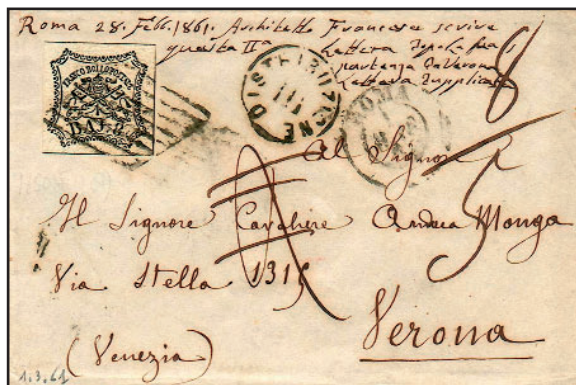 Roma 28. Febb. 1861. Architetto Francesco scrive
questa IIa Lettera dopo la sua
partenza da Verona
Lettera
FRANCO BOLLO POSTALE
BAJ. 8
DISTRIBUZIONE
ROMA
8
5
Al Signore
Il Signore Cavaliere Andrea Monga
Via Stella 1315
Verona
(Venezia)
1.3.61